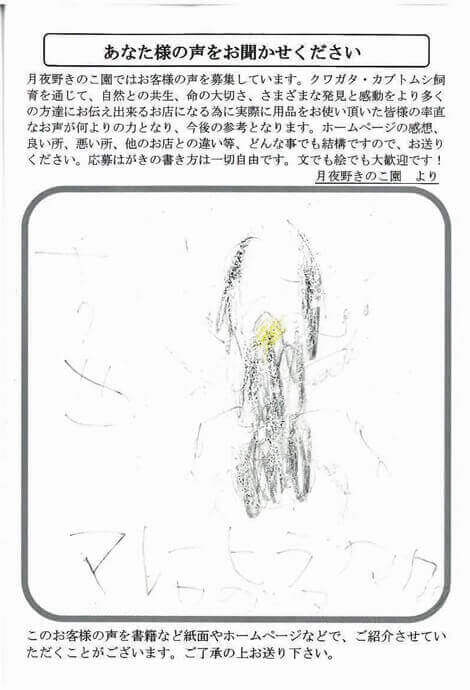 あなた様の声をお聞かせください
月夜野きのこ園ではお客様の声を募集しています。クワガタ・カブトムシ飼
育を通じて、自然との共生、命の大切さ、さまざまな発見と感動をより多く
の方達にお伝え出来るお店になる為に実際に用品をお使い頂いた皆様の率直
なお声が何よりの力となり、今後の参考となります。ホームページの感想、
良い所、悪い所、他のお店との違い等、どんな事でも結構ですので、お送り
ください。応募はがきの書き方は一切自由です。文でも絵でも大歓迎です！
月夜野きのこ園　より
マレーヒラタ
このお客様の声を書籍など紙面やホームページなどで、ご紹介させてい
ただくことがございます。ご了承の上お送り下さい。